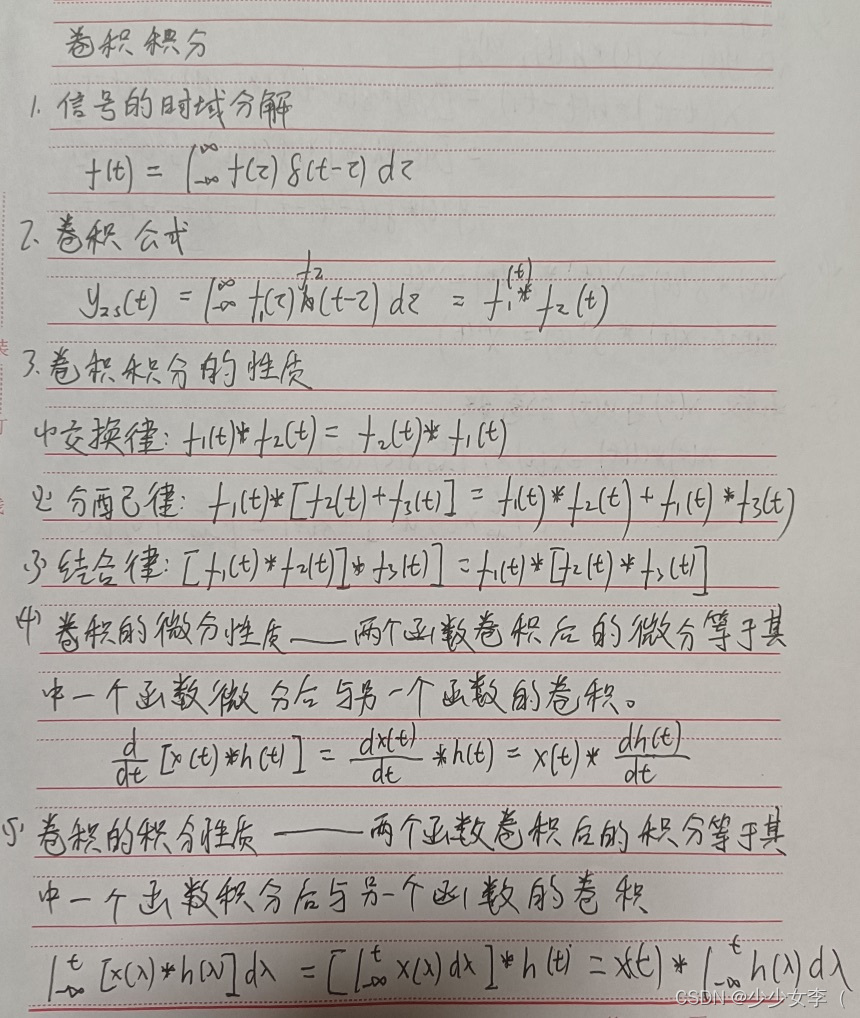 卷积积分
1. 信号的时域分解
f(t) = ∫_{-∞}^{∞} f(τ) δ(t-τ) dτ
2. 卷积公式
y_{zs}(t) = ∫_{-∞}^{∞} f₁(τ) f₂(t-τ) dτ = f₁(t) * f₂(t)
3. 卷积积分的性质
(1) 交换律: f₁(t)*f₂(t) = f₂(t)*f₁(t)
(2) 分配律: f₁(t)*[f₂(t)+f₃(t)] = f₁(t)*f₂(t)+f₁(t)*f₃(t)
(3) 结合律: [f₁(t)*f₂(t)]*f₃(t)] = f₁(t)*[f₂(t)*f₃(t)]
(4) 卷积的微分性质——两个函数卷积后的微分等于其
中一个函数微分后与另一个函数的卷积。
d/dt [x(t)*h(t)] = dx(t)/dt *h(t) = x(t)* dh(t)/dt
(5) 卷积的积分性质——两个函数卷积后的积分等于其
中一个函数积分后与另一个函数的卷积
∫_{-∞}^{t} [x(λ)*h(λ)]dλ = [∫_{-∞}^{t} x(λ)dλ]*h(t) = x(t)*∫_{-∞}^{t} h(λ)dλ
CSDN @少少女李 (